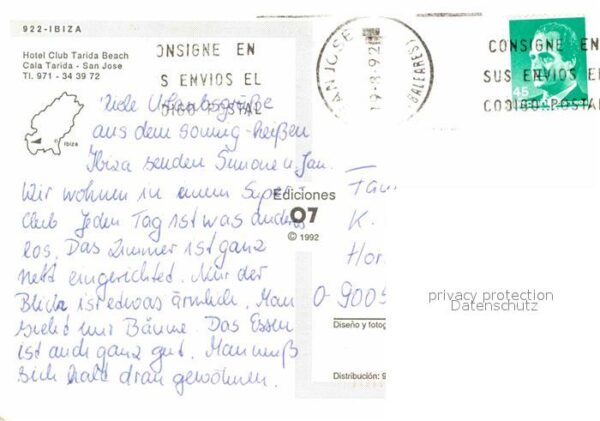 922-IBIZA
Hotel Club Tarida Beach
Cala Tarida - San Jose
Tl. 971 - 34 39 72
Ibiza
CONSIGNE EN
SUS ENVIOS EL
CODIGO POSTAL
SAN JOSE
19-8-92
(BALEARES)
CONSIGNE EN
SUS ENVIOS EL
CODIGO POSTAL
45
Viele Urlaubsgrüße
aus dem sonnig-heißen
Ibiza senden Simone u. Jan.
Wir wohnen in einem Super
Club. Jeden Tag ist was anderes
los. Das Zimmer ist ganz
nett eingerichtet. Nur der
Blick ist etwas ärmlich. Man
sieht nur Bäume. Das Essen
ist auch ganz gut. Man muß
sich halt dran gewöhnen.
Ediciones
07
© 1992
K.
Hor
O-9009
Diseño y fotog
Distribución: 9
privacy protection
Datenschutz